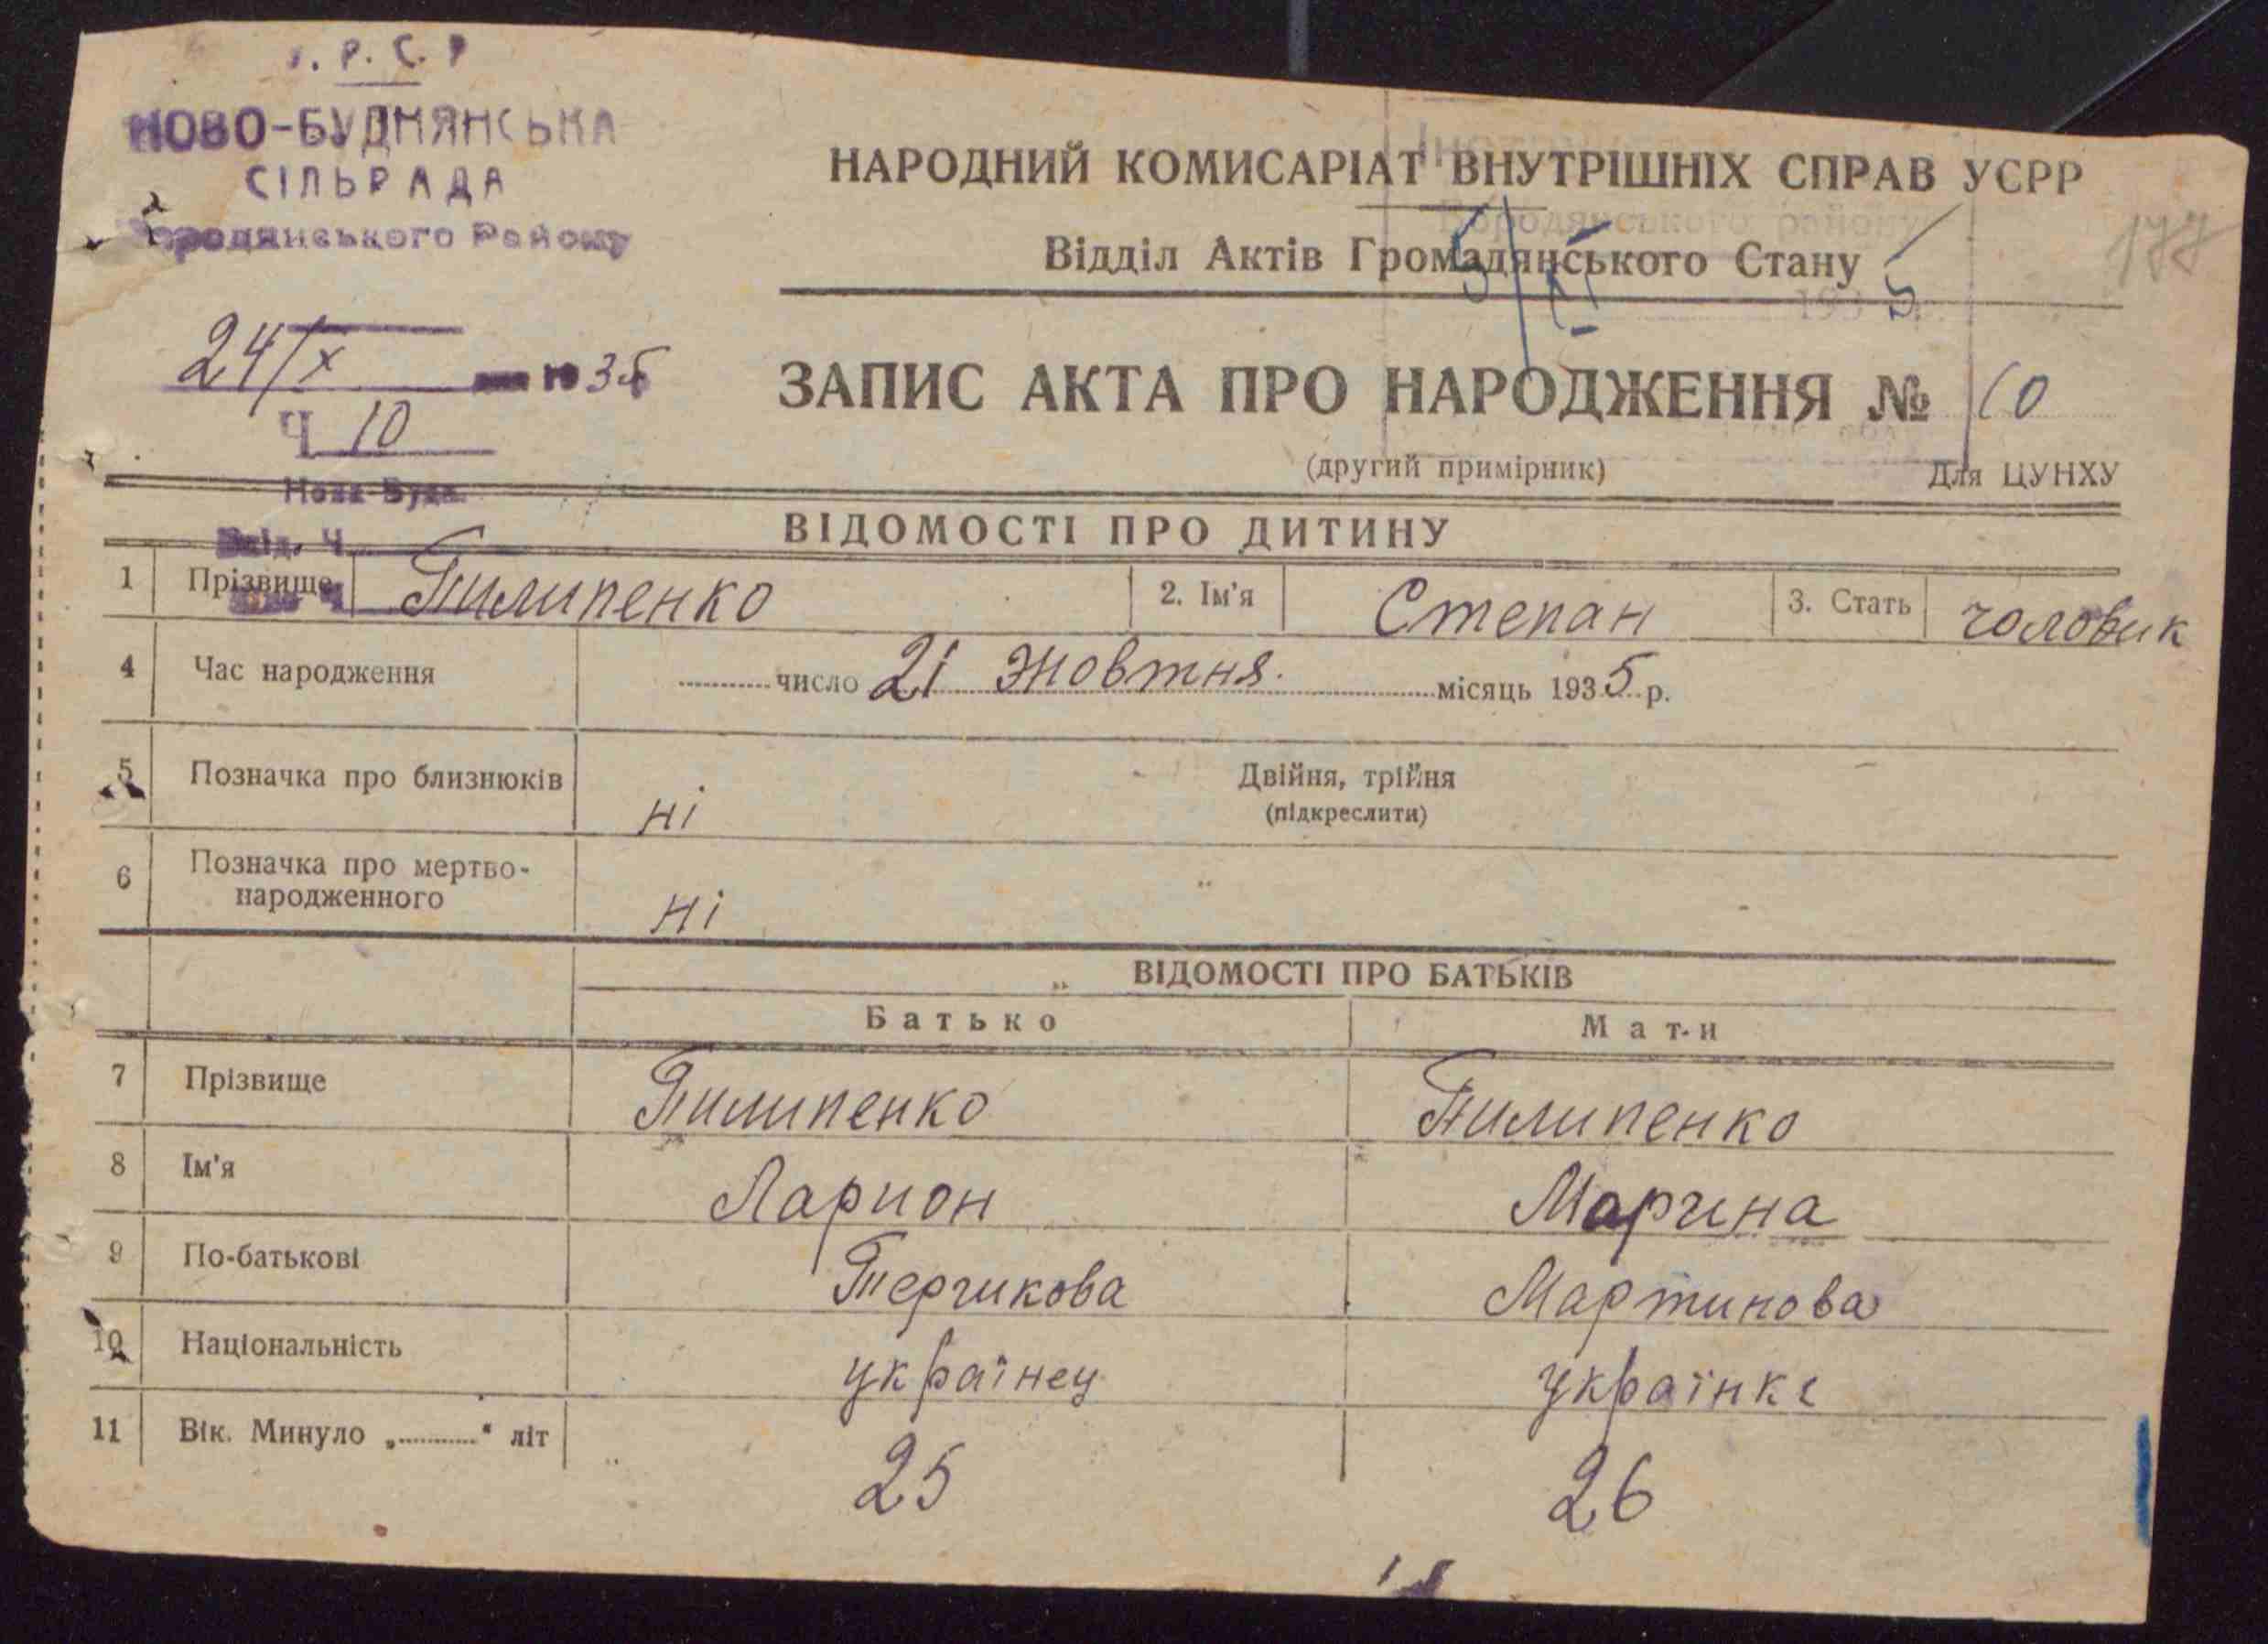 У. Р. С. Р
НОВО-БУДНЯНСЬКА
СІЛЬРАДА
Бородянського Району
24/X 1935
Ч 10
Нова-Буда
Вхід. Ч.
177
НАРОДНИЙ КОМИСАРІАТ ВНУТРІШНІХ СПРАВ УСРР
Бородянського району
Відділ Актів Громадянського Стану
5/XI 1935
ЗАПИС АКТА ПРО НАРОДЖЕННЯ № 10
(другий примірник) Для ЦУНХУ
ВІДОМОСТІ ПРО ДИТИНУ
1 Прізвище Пилипенко 2. Ім'я Степан 3. Стать чоловик
4 Час народження число 21 жовтня. місяць 1935 р.
5 Позначка про близнюків ні Двійня, трійня
(підкреслити)
6 Позначка про мертво-
народженного ні
ВІДОМОСТІ ПРО БАТЬКІВ
Батько Мати
7 Прізвище Пилипенко Пилипенко
8 Ім'я Ларион Марина
9 По-батькові Мартинова
10 Національність українец українка
11 Вік. Минуло „..........“ літ 25 26